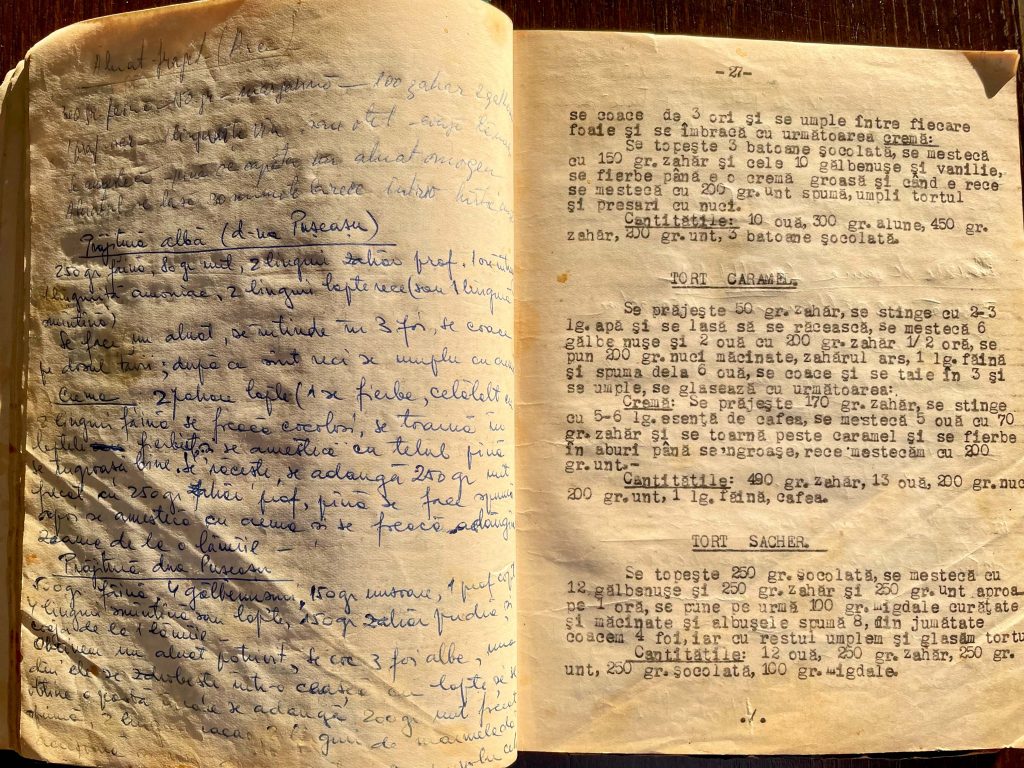 Aluat fraged (Aca)
făină — 150 gr margarină — 100 zahăr 2 gălb
1 praf
până se capătă un aluat omogen
Aluatul se lasă 30 minute
Prăjitură albă (d-na Pușcașu)
250 gr făină, 80 gr unt, 2 linguri zahăr praf, 1 ou întreg
1 linguriță amoniac, 2 linguri lapte rece (sau 1 lingură
smîntînă)
Se face un aluat, se întinde în 3 foi, se coace
pe dosul tăvii; după ce sînt reci se umplu cu cremă
Crema 2 pahare lapte (1 se fierbe, celălalt cu
2 linguri făină se freacă cocoloși, se toarnă în
laptele fierbinte, se amestecă cu telul pînă
se îngroașă bine. Se răcește, se adaugă 250 gr unt
frecat cu 250 gr zahăr praf, pînă se face spumă
apoi se amestecă cu crema și se freacă adăugînd
zeama de la o lămîie —
Prăjitură dna Pușcașu
500 gr făină, 4 gălbenușuri, 150 gr untură, 1 praf copt
4 linguri smîntînă sau lapte, 150 gr zahăr pudră, și
coaja de la 1 lămîie
Obținem un aluat potrivit, se coc 3 foi albe, una
din ele se zdrobește într-o ceașcă cu lapte se
obține o pastă se adaugă 200 gr unt frecat
spumă, 3 linguri cacao, 2 linguri de marmeladă
- 27-
se coace de 3 ori și se umple între fiecare
foaie și se îmbracă cu următoarea cremă:
Se topește 3 batoane șocolată, se mestecă
cu 150 gr. zahăr și cele 10 gălbenușe și vanilie,
se fierbe până e o cremă groasă și când e rece
se mestecă cu 200 gr. unt spumă, umpli tortul
și presari cu nuci.
Cantitățile: 10 ouă, 300 gr. alune, 450 gr.
zahăr, 200 gr. unt, 3 batoane șocolată.
TORT CARAMEL.
Se prăjește 50 gr. zahăr, se stinge cu 2-3
lg. apă și se lasă să se răcească, se mestecă 6
gălbe nușe și 2 ouă cu 200 gr. zahăr 1/2 oră, se
pun 200 gr. nuci măcinate, zahărul ars, 1 lg. făină
și spuma dela 6 ouă, se coace și se taie în 3 și
se umple, se glasează cu următoarea:
Cremă: Se prăjește 170 gr. zahăr, se stinge
cu 5-6 lg. esență de cafea, se mestecă 5 ouă cu 70
gr. zahăr și se toarnă peste caramel și se fierbe
în aburi până se'ngroașe, rece mestecăm cu 200
gr. unt.-
Cantitățile: 490 gr. zahăr, 13 ouă, 200 gr. nuc
200 gr. unt, 1 lg. făină, cafea.
TORT SACHER.
Se topește 250 gr. șocolată, se mestecă cu
12 gălbenușe și 250 gr. zahăr și 250 gr. unt aproa-
pe 1 oră, se pune pe urmă 100 gr. migdale curățate
și măcinate și albușele spumă 8, din jumătate
coacem 4 foi, iar cu restul umplem și glasăm tortu
Cantitățile: 12 ouă, 250 gr. zahăr, 250 gr.
unt, 250 gr. șocolată, 100 gr. migdale.
./.